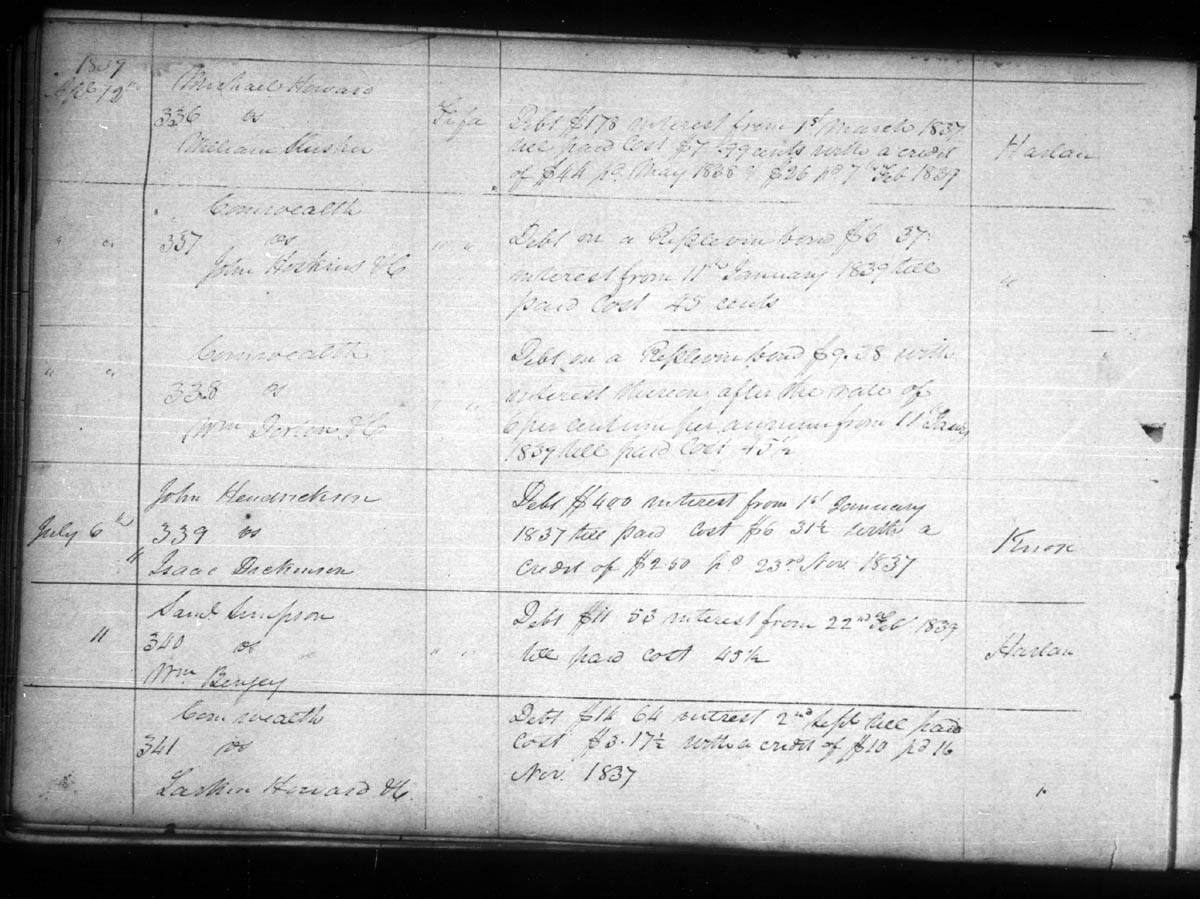 1839
Apl 12th Michael Howard
336 vs Fifa Debt $178 interest from 1st March 1837
William till paid Cost $7.99 cents with a credit Harlan
of $44 pd May 1838 & $26 pd 7th Feb 1839
Comwealth
" " 337 vs " " Debt on a Replevin bond $6 37
John Hoskins &C interest from 11th January 1839 till "
paid Cost 45 cents
Comwealth Debt on a Replevin bond $9.38 with
" " 338 vs " " interest thereon after the rate of
Wm &C 6 per centum per annum from 11th Jany
1839 till paid Cost 45½
John Hendrickson Debt $400 interest from 1st January
July 6th 339 vs 1837 till paid Cost $6 31½ with a Knox
" Isaac Dickinson credit of $250 pd 23rd Nov. 1837
Saml Simpson Debt $11 53 interest from 22nd Feb 1839
" 340 vs " " till paid cost 45½ Harlan
Wm
Comwealth Debt $14 64 interest 2nd Sept till paid
341 vs Cost $3.17½ with a credit of $10 pd 16
Nov. 1837
Larkin Howard &C "